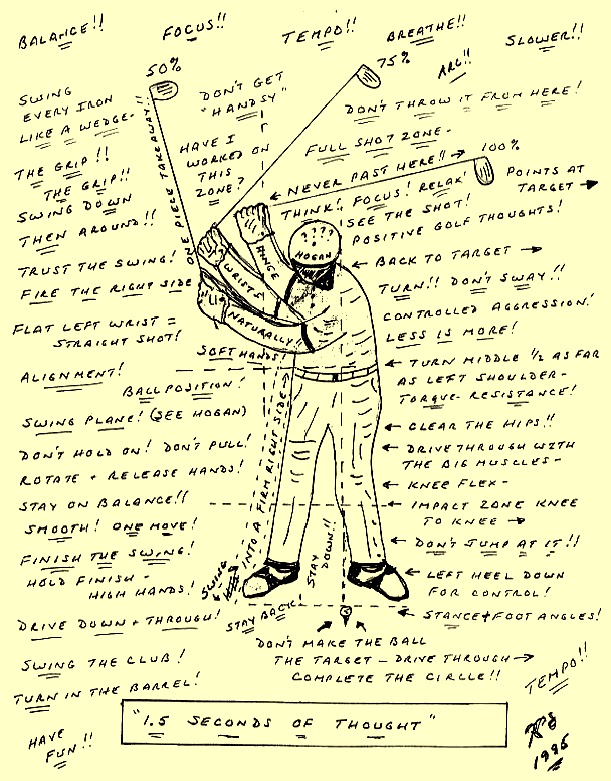 BALANCE!!
FOCUS!!
TEMPO!!
BREATHE!!
SLOWER!!
50%
75%
ARG!!
SWING
EVERY IRON
LIKE A WEDGE-
DON'T GET
"HANDSY"
DON'T THROW IT FROM HERE!
ONE PIECE TAKEAWAY!!
HAVE I
WORKED ON
THIS
ZONE?
FULL SHOT ZONE-
100%
NEVER PAST HERE!!
POINTS AT
TARGET
THE GRIP!!
THE GRIP!!
SWING DOWN
THEN AROUND!!
THINK! FOCUS! RELAX!
SEE THE SHOT!
POSITIVE GOLF THOUGHTS!
????
HOGAN
TRUST THE SWING!
FIRE THE RIGHT SIDE
WRISTS
HINGE
NATURALLY!
BACK TO TARGET
TURN!! DON'T SWAY!!
CONTROLLED AGGRESSION!
LESS IS MORE!
FLAT LEFT WRIST =
STRAIGHT SHOT!
SOFT HANDS!
ALIGNMENT!
BALL POSITION!
TURN MIDDLE 1/2 AS FAR
AS LEFT SHOULDER-
TORQUE-RESISTANCE!
SWING PLANE! (SEE HOGAN)
CLEAR THE HIPS!!
DON'T HOLD ON! DON'T PULL!
ROTATE + RELEASE HANDS!
DRIVE THROUGH WITH
THE BIG MUSCLES-
STAY ON BALANCE!!
KNEE FLEX-
SMOOTH! ONE MOVE!
IMPACT ZONE KNEE
TO KNEE
FINISH THE SWING!
HOLD FINISH-
HIGH HANDS!
DON'T JUMP AT IT!!
SWING
INTO A FIRM RIGHT SIDE
STAY DOWN!!
LEFT HEEL DOWN
FOR CONTROL!
DRIVE DOWN + THROUGH!
STAY BACK
STANCE + FOOT ANGLES!
DON'T MAKE THE BALL
THE TARGET - DRIVE THROUGH
COMPLETE THE CIRCLE!!
SWING THE CLUB!
TURN IN THE BARREL!
TEMPO!!
"1.5 SECONDS OF THOUGHT"
HAVE
FUN!!
1995